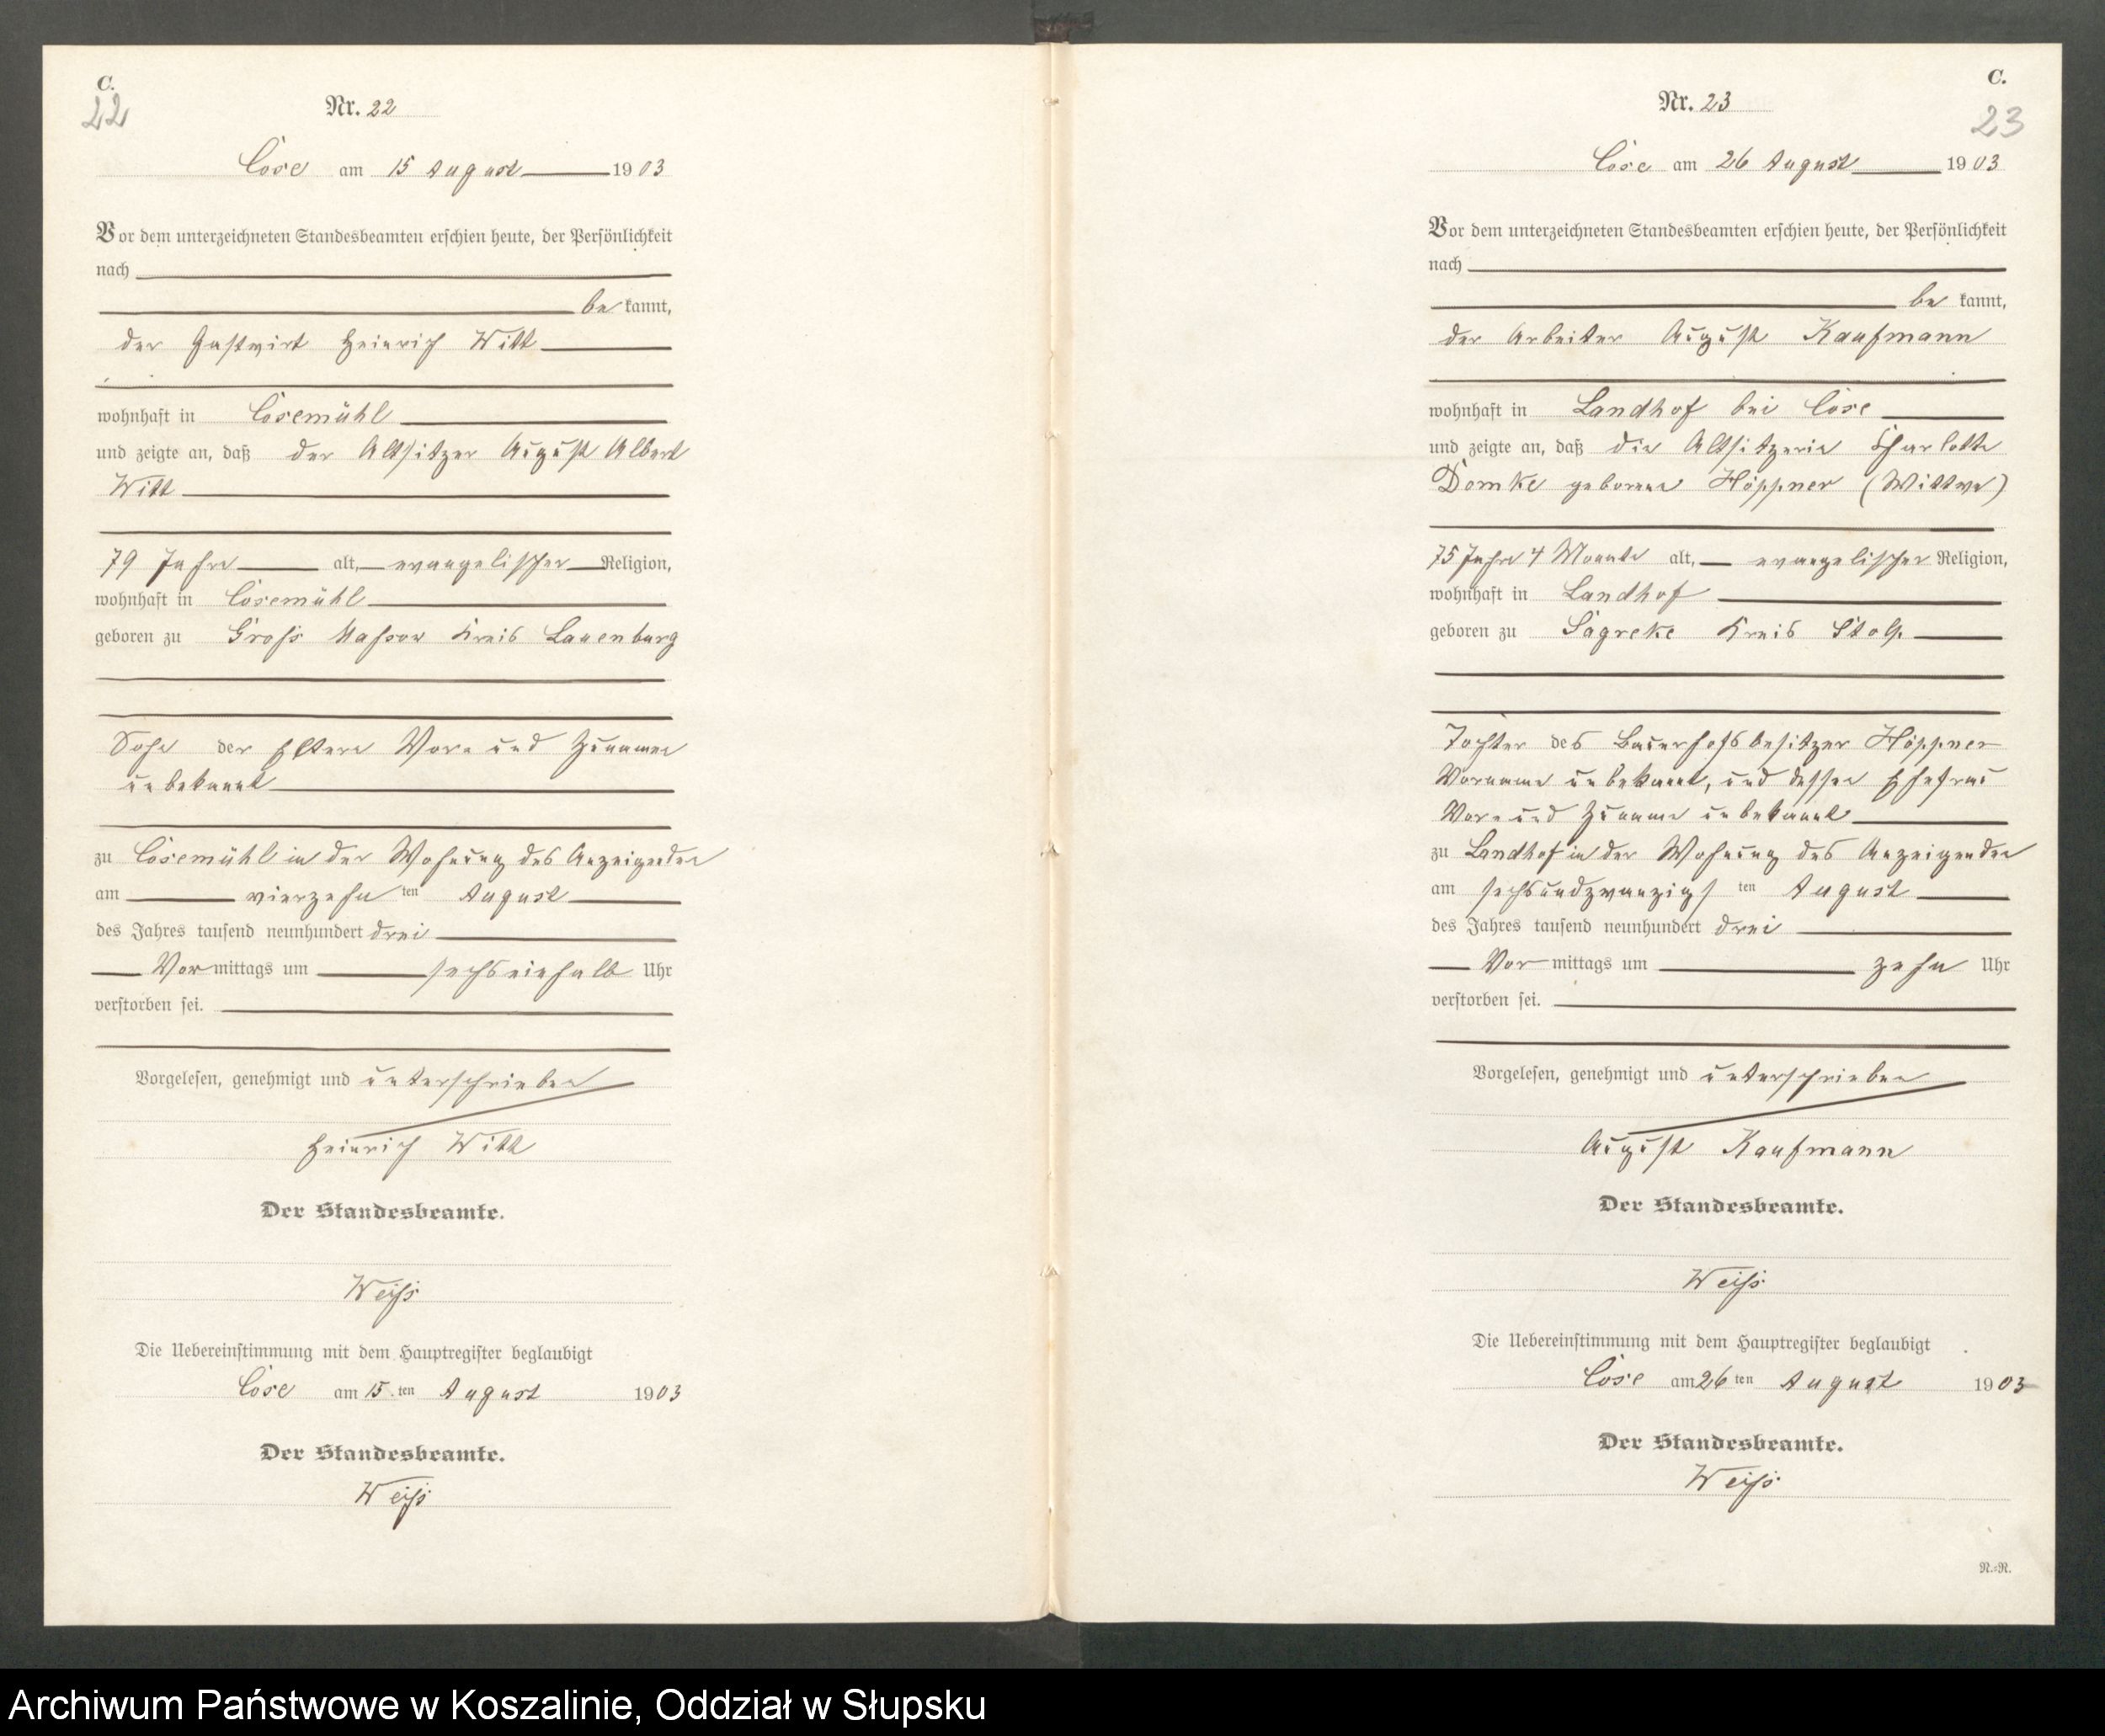 C.
22
Nr. 22
Cose am 15 August 1903
Vor dem unterzeichneten Standesbeamten erschien heute, der Persönlichkeit
nach
be kannt,
der Gastwirt Heinrich Witt
wohnhaft in Cosemühl
und zeigte an, daß der Altsitzer August Albert
Witt
79 Jahre alt, evangelischer Religion,
wohnhaft in Cosemühl
geboren zu Gross Massow Kreis Lauenburg
Sohn der Eltern Vor- und Zunamen
unbekannt
zu Cosemühl in der Wohnung des Anzeigenden
am vierzehn ten August
des Jahres tausend neunhundert drei
Vor mittags um sechseinhalb Uhr
verstorben sei.
Vorgelesen, genehmigt und unterschrieben
Heinrich Witt
Der Standesbeamte.
Weiss
Die Uebereinstimmung mit dem Hauptregister beglaubigt
Cose am 15. ten August 1903
Der Standesbeamte.
Weiss
C.
23
Nr. 23
Cose am 26 August 1903
Vor dem unterzeichneten Standesbeamten erschien heute, der Persönlichkeit
nach
be kannt,
der Arbeiter August Kaufmann
wohnhaft in Landhof bei Cose
und zeigte an, daß die Altsitzerin Charlotte
Domke geborene Höppner (Wittwe)
75 Jahre 4 Monate alt, evangelischer Religion,
wohnhaft in Landhof
geboren zu Sagreke Kreis Stolp
Tochter des Bauerhofsbesitzer Höppner
Vorname unbekannt, und dessen Ehefrau
Vor- und Zuname unbekannt
zu Landhof in der Wohnung des Anzeigenden
am sechsundzwanzigs ten August
des Jahres tausend neunhundert drei
Vor mittags um zehn Uhr
verstorben sei.
Vorgelesen, genehmigt und unterschrieben
August Kaufmann
Der Standesbeamte.
Weiss
Die Uebereinstimmung mit dem Hauptregister beglaubigt
Cose am 26 ten August 1903
Der Standesbeamte.
Weiss
N.=R.
Archiwum Państwowe w Koszalinie, Oddział w Słupsku